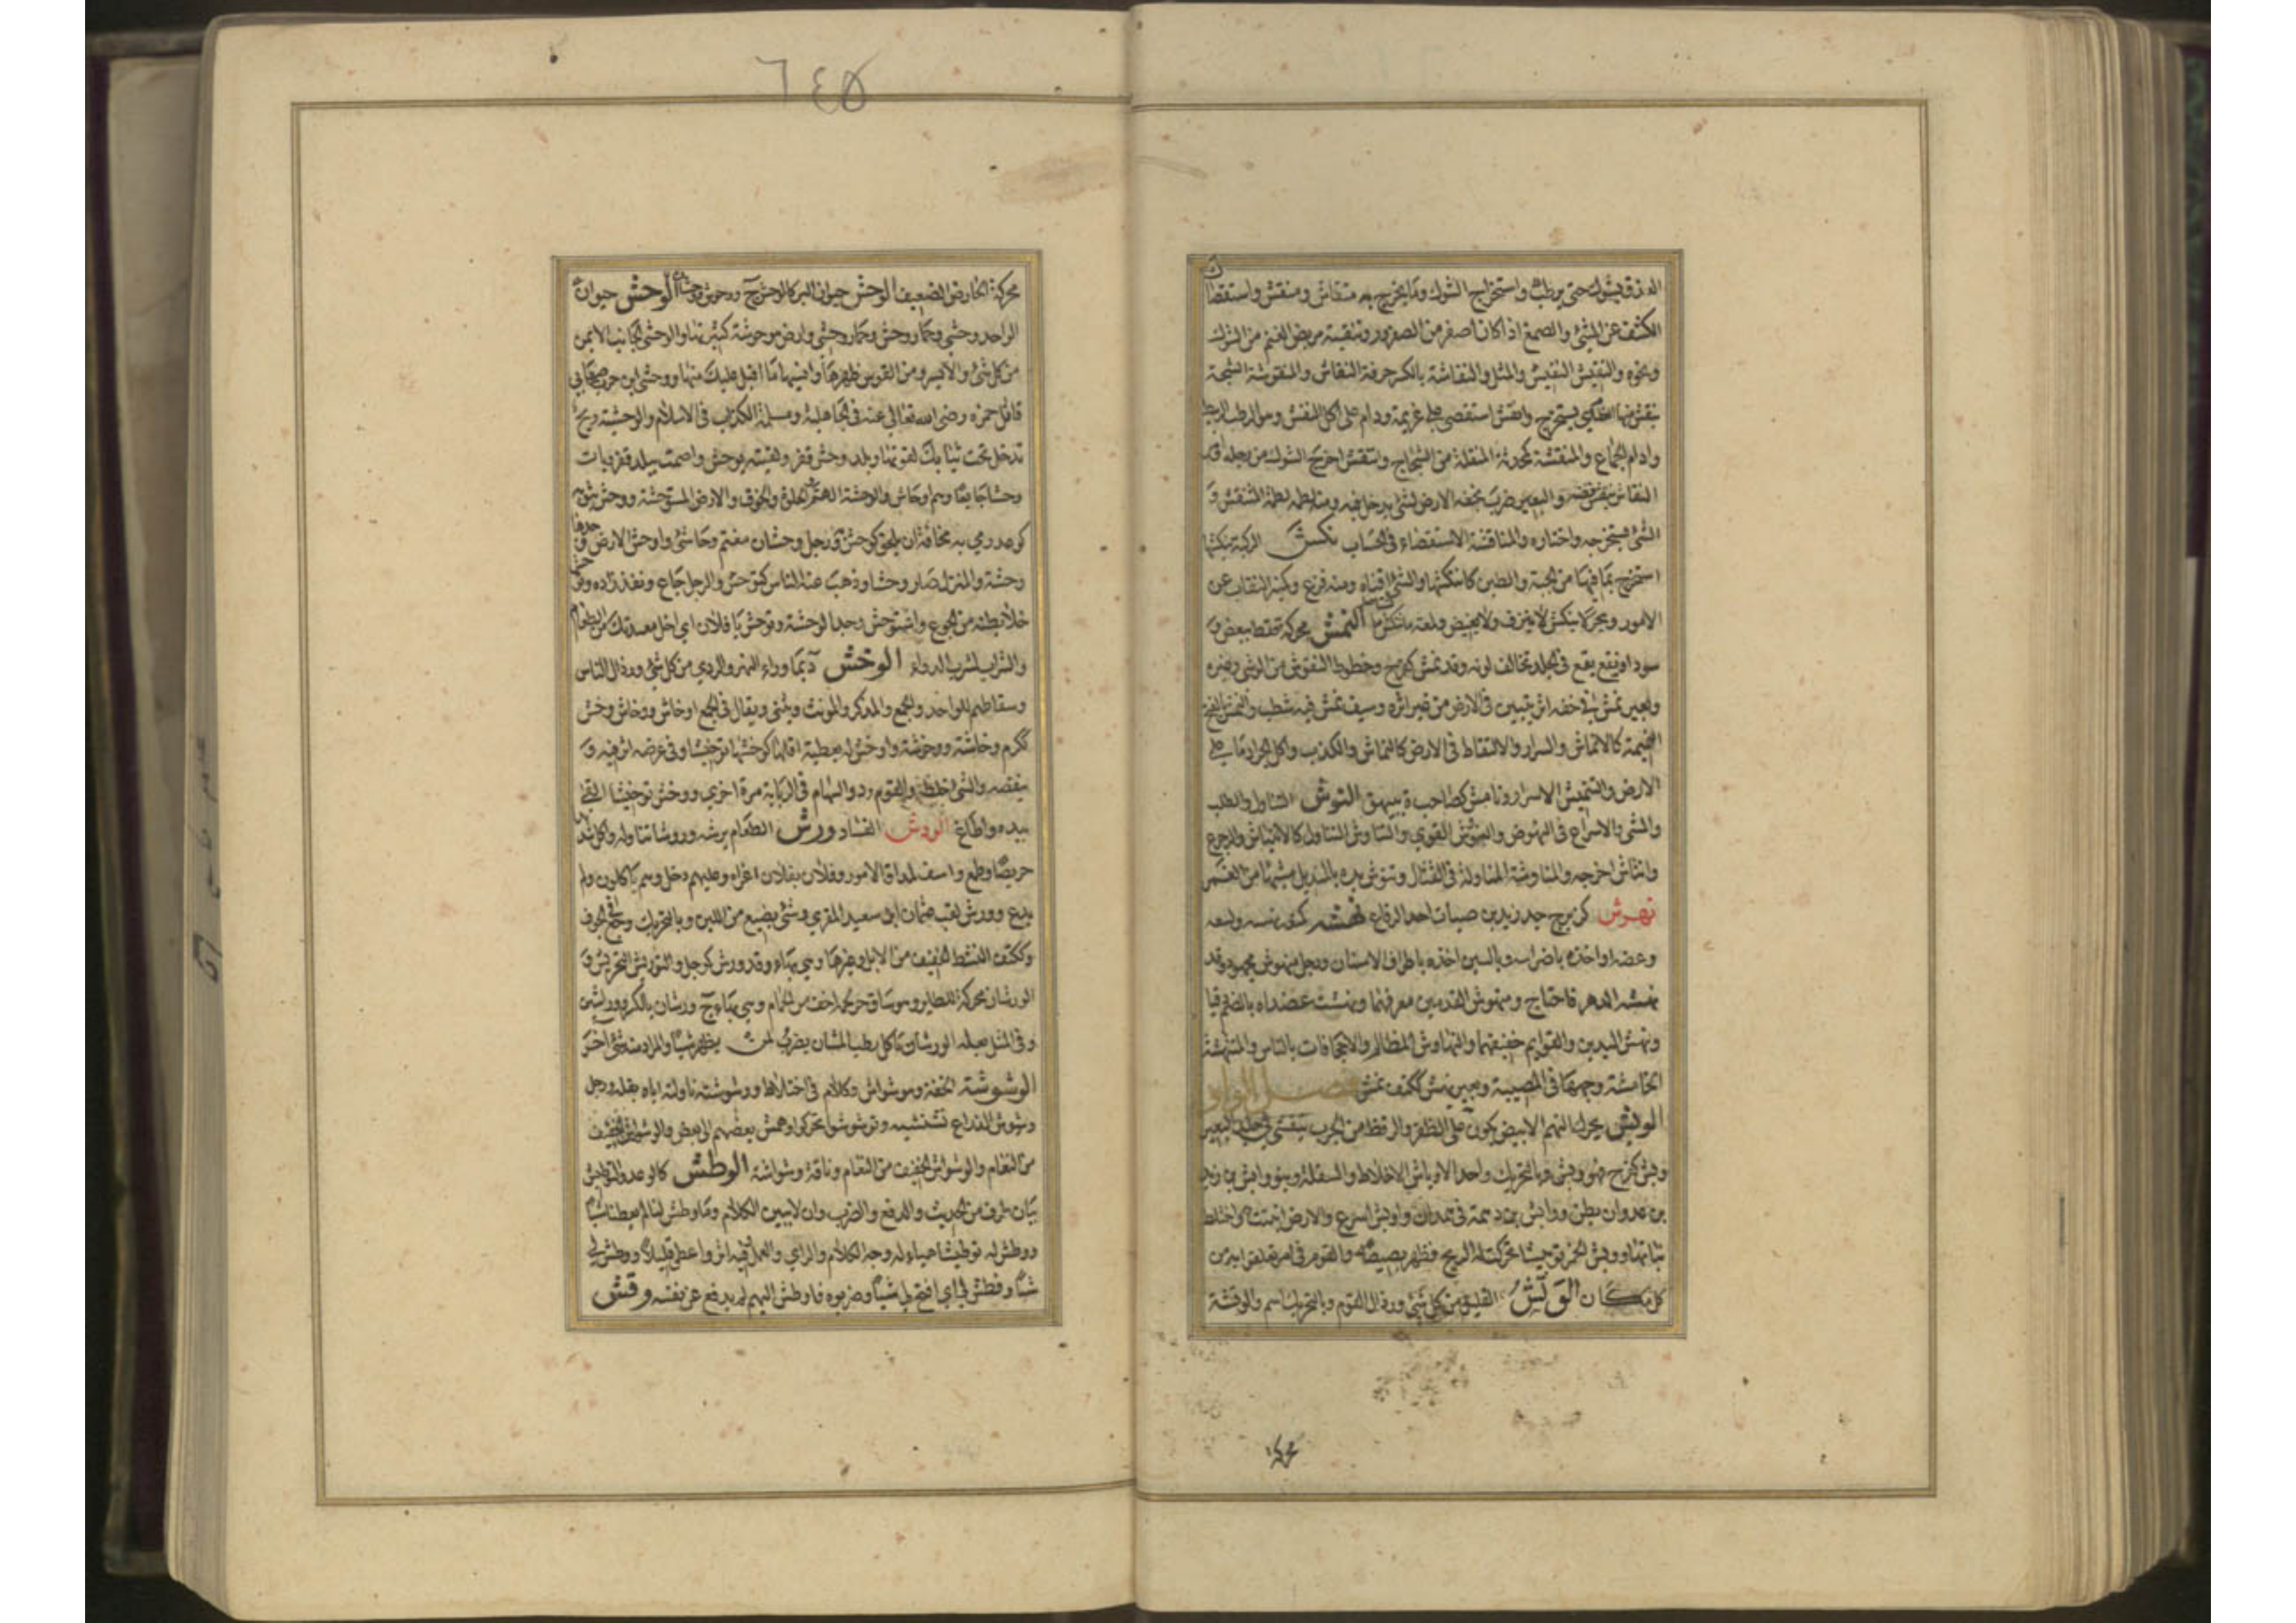 ٦٤٥
العذق بشوك حتى يرطب واستخراج الشوك وما يخرج به منقاش ومنقش واستقصا
الكشف عن الشئ والصمغ اذا كان اصفر من الصعرور وتنقية مربض الغنم من الشوك
ونحوه والنقيش النقيش والمثل والنقاشة بالكسر حرفة النقاش والمنقوشة الشجة
ينقش منها العظام اي يستخرج وانقش استقصى على غريمه ودام على اكل النقش وهو الرطب الربيط
وادام الجماع والمنقشة كمحدثة المنقلة من الشجاج وانتقش اخرج الشوك من رجله وامر
النقاش بنقش فصه والبعير ضرب بخفه الارض لشئ يدخل فيه ومنه لطمه لطمة المنتقش و
الشئ استخرجه واختاره والمناقشة الاستقصاء في الحساب نكش الركية ينكشها
استخرج ما فيها من الجبة والطين كانتكشها والشئ افناه ومنه فرغ وكمنبر النقاب عن
الامور وبحر لا ينكش لا ينزف ولا يغيض النمش محركة نقط بيض و
سود او بقع تقع في الجلد تخالف لونه وقد نمش كفرح وخطوط النقوش من الوشي وغيره
وبعير نمش في خفه اثر يتبين في الارض من غير اثره وسيف نمش فيه شطب والنمش بالفتح
النميمة كالانماش والسرار والالتقاط في الارض كالنماش والكذب واكل الجراد ما على
الارض والتنميش الاسرار ونامش كصاحب ة ببيهق النوش التناول والطلب
والمشي والاسراع في النهوض والنووش القوي والتناوش التناول كالانتياش والرجوع
وانتاش اخرجه والمناوشة المناولة في القتال وتنوش يده بالمنديل مشها من الغمر
نهرش كزبرج جد زيد بن صبات احد الرقاع نهشه كمنعه نهسه ولسعه
وعضه او اخذه باضراسه وبالسين اخذه باطراف الاسنان ورجل منهوش مجهود وقد
نهشه الدهر فاحتاج ومنهوش القدمين معرقهما ونهشت عضداه بالضم دقتا
ونهش اليدين والقوايم خفيفهما والنهاوش المظالم والاجحافات بالناس والمنتهشة
الخامشة وجهها في المصيبة وبعير نهش ككتف نمش فصل الواو
الوبش يحرك النمنم الابيض يكون على الظفر والرقط من الجرب يتفشى في جلد البعير
وبش كفرح فهو وبش وبالتحريك واحد الاوباش الاخلاط والسفلة وبنو وابش بن زيد
بن عدوان بطن ووابش بن دهمة في همدان واوبش اسرع والارض انبتت او اختلط
نباتها ووبش الجمر توبيشا تحركت له الريح فظهر بصيصه والقوم في امر تعلقوا به من
كل مكان الوتش القليل من كل شئ ورذال القوم وبالتحريك اسم والوتشة
محركة الحارض الضعيف الوحش حيوان البر كالوحيش ج وحوش ووحشان
الواحد وحشي وحمار وحش وحمار وحشي وارض موحوشة كثيرتها والوحشي الجانب الايمن
من كل شئ والايسر ومن القوس ظهرها وانسيها ما اقبل عليك منها ووحشي ابن حرب صحابي
قاتل حمزه رضى الله تعالى عنه في الجاهلية ومسلمة الكذاب في الاسلام والوحشية ريح
تدخل تحت ثيابك لقوتها وبلد وحش قفر ولقيته بوحش اصمت ببلد قفر وبات
وحشا جايعا وهم اوحاش والوحشة الهم والخلوة والخوف والارض المستوحشة ووحش بثوبه
كوعد رمى به مخافة ان يلحق كوحش ورجل وحشان مغتم وحاشي واوحش الارض وجدها
وحشة والمنزل صار وحشا وذهب عنه الناس كتوحش والرجل جاع ونفد زاده وتوحش
خلا بطنه من الجوع واستوحش وجد الوحشة وتوحش يا فلان اي اخل معدتك من الطعام
والشراب لشرب الدواء الوخش ة بما وراء النهر والردي من كل شئ ورذال الناس
وسقاطهم للواحد والجمع والمذكر والمونث ويثنى ويقال في الجمع اوخاش ووخاش ووخش
ككرم وخاشة ووخوشة واوخش له بعطية اقلها كوخشها توخيشا وفي عرضه اثر فيه و
ينقصه والشئ خلطه والقوم ردوا السهام في الربابة مرة اخرى ووخش توخيشا القى
بيده واطاع الودش الفساد ورش الطعام يرشه وروشا تناوله واكل شديدا
حريصا وطمع واسف لمداق الامور وفلان بفلان اغراه وعليهم دخل وهم ياكلون ولم
يدع وورش لقب عثمان ابن سعيد المقري وشئ يصنع من اللبن وبالتحريك وجع في الجوف
وككتف النشط الخفيف من الابل وغيرها وهي بهاء وقد ورش كوجل والتوريش التحريش و
الورشان محركة طاير وهو ساق حر لحمه اخف من الحمام وهي بهاء ج ورشان بالكسر ووراشين
وفي المثل بعلة الورشان ياكل رطب المشان يضرب لمن يظهر شيئا والمراد منه شئ اخر
الوشوشة الخفة وهو وشواش وكلام في اختلاط ووشوشته ناولته اياه بقلة ورجل
وشوش الذراع نشنشيه وتوشوشوا تحركوا وهمش بعضهم الى بعض والوشواش الخفيف
من النعام والوشواش الخفيف من النعام وناقة وشواشة الوطش كالوعد والتوطيش
بيان طرف من الحديث والدفع والضرب وان لا يبين الكلام وما وطش لنا لم يعطنا شيئا
ووطش له توطيشا هياء له وجه الكلام والراي والعمل وفيه اثر واعطى قليلا ووطش لي
شيئا وغطش لي اي افتح لي شيئا وضربوه فما وطش اليهم لم يدفع عن نفسه وقش